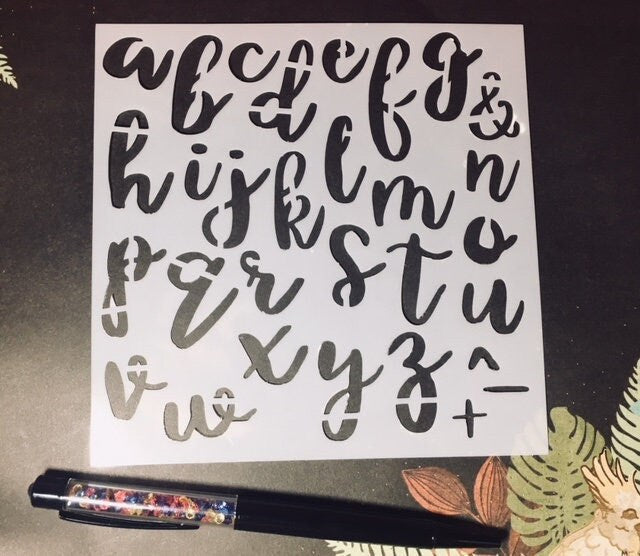 a b c d e f g &
h i j k l m n
p q r s t o
v w x y z u
^ –
+